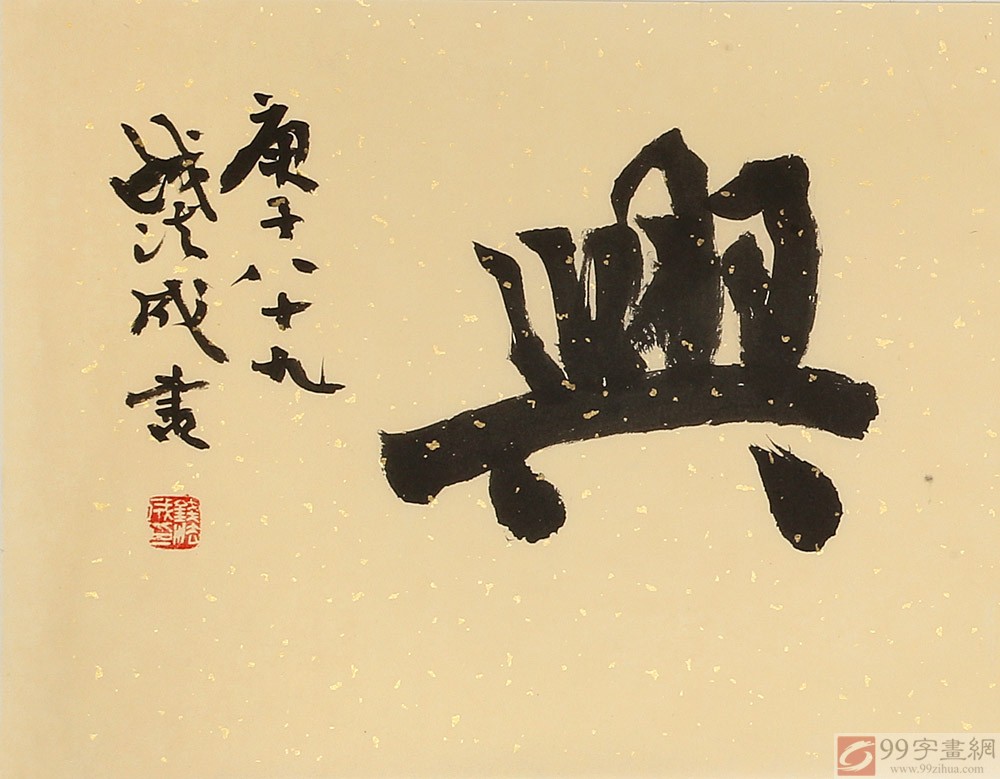 興
庚子八十九
錢法成書
錢法成印
99字畫網
www.99zihua.com